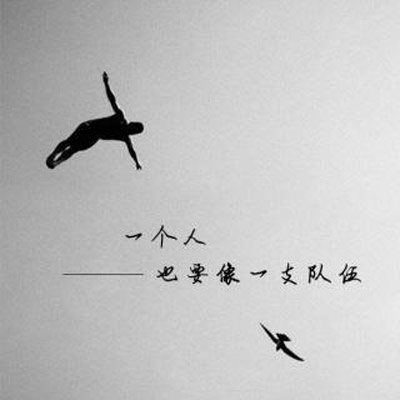 一个人
也要像一支队伍